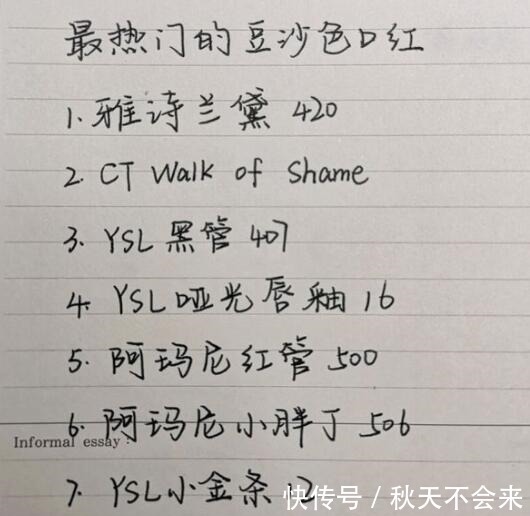 最热门的豆沙色口红
1. 雅诗兰黛 420
2. CT Walk of Shame
3. YSL 黑管 407
4. YSL 哑光唇釉 16
5. 阿玛尼红管 500
6. 阿玛尼小胖丁 506
Informal essay:
7. YSL小金条
快传号 / 秋天不会来